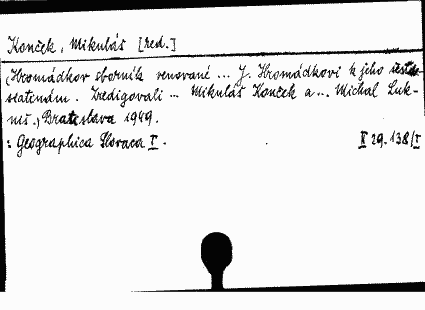 Konček, Mikuláš [red.]
(Hromádkov sborník venované ... J. Hromádkovi k jeho šest-
desiatinám. Zredigovali ... Mikuláš Konček a ... Michal Luk-
niš.) Bratislava 1949.
: Geographica Slovaca I. II 29.138/I